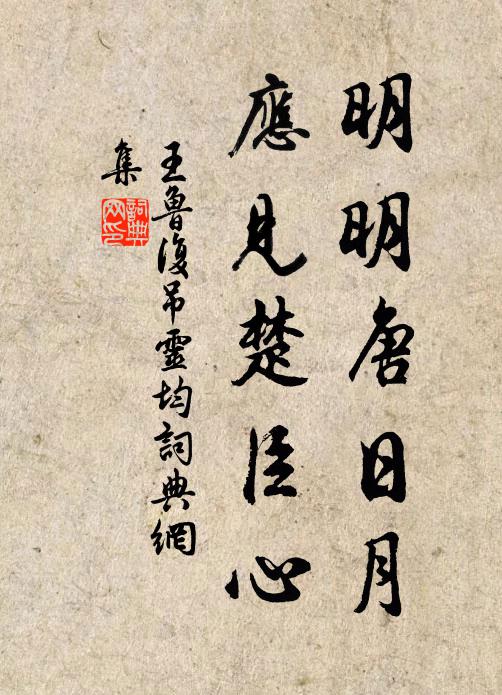 明明唐日月
應見楚臣心
王魯復吊靈均詞典網
集
詞典網印